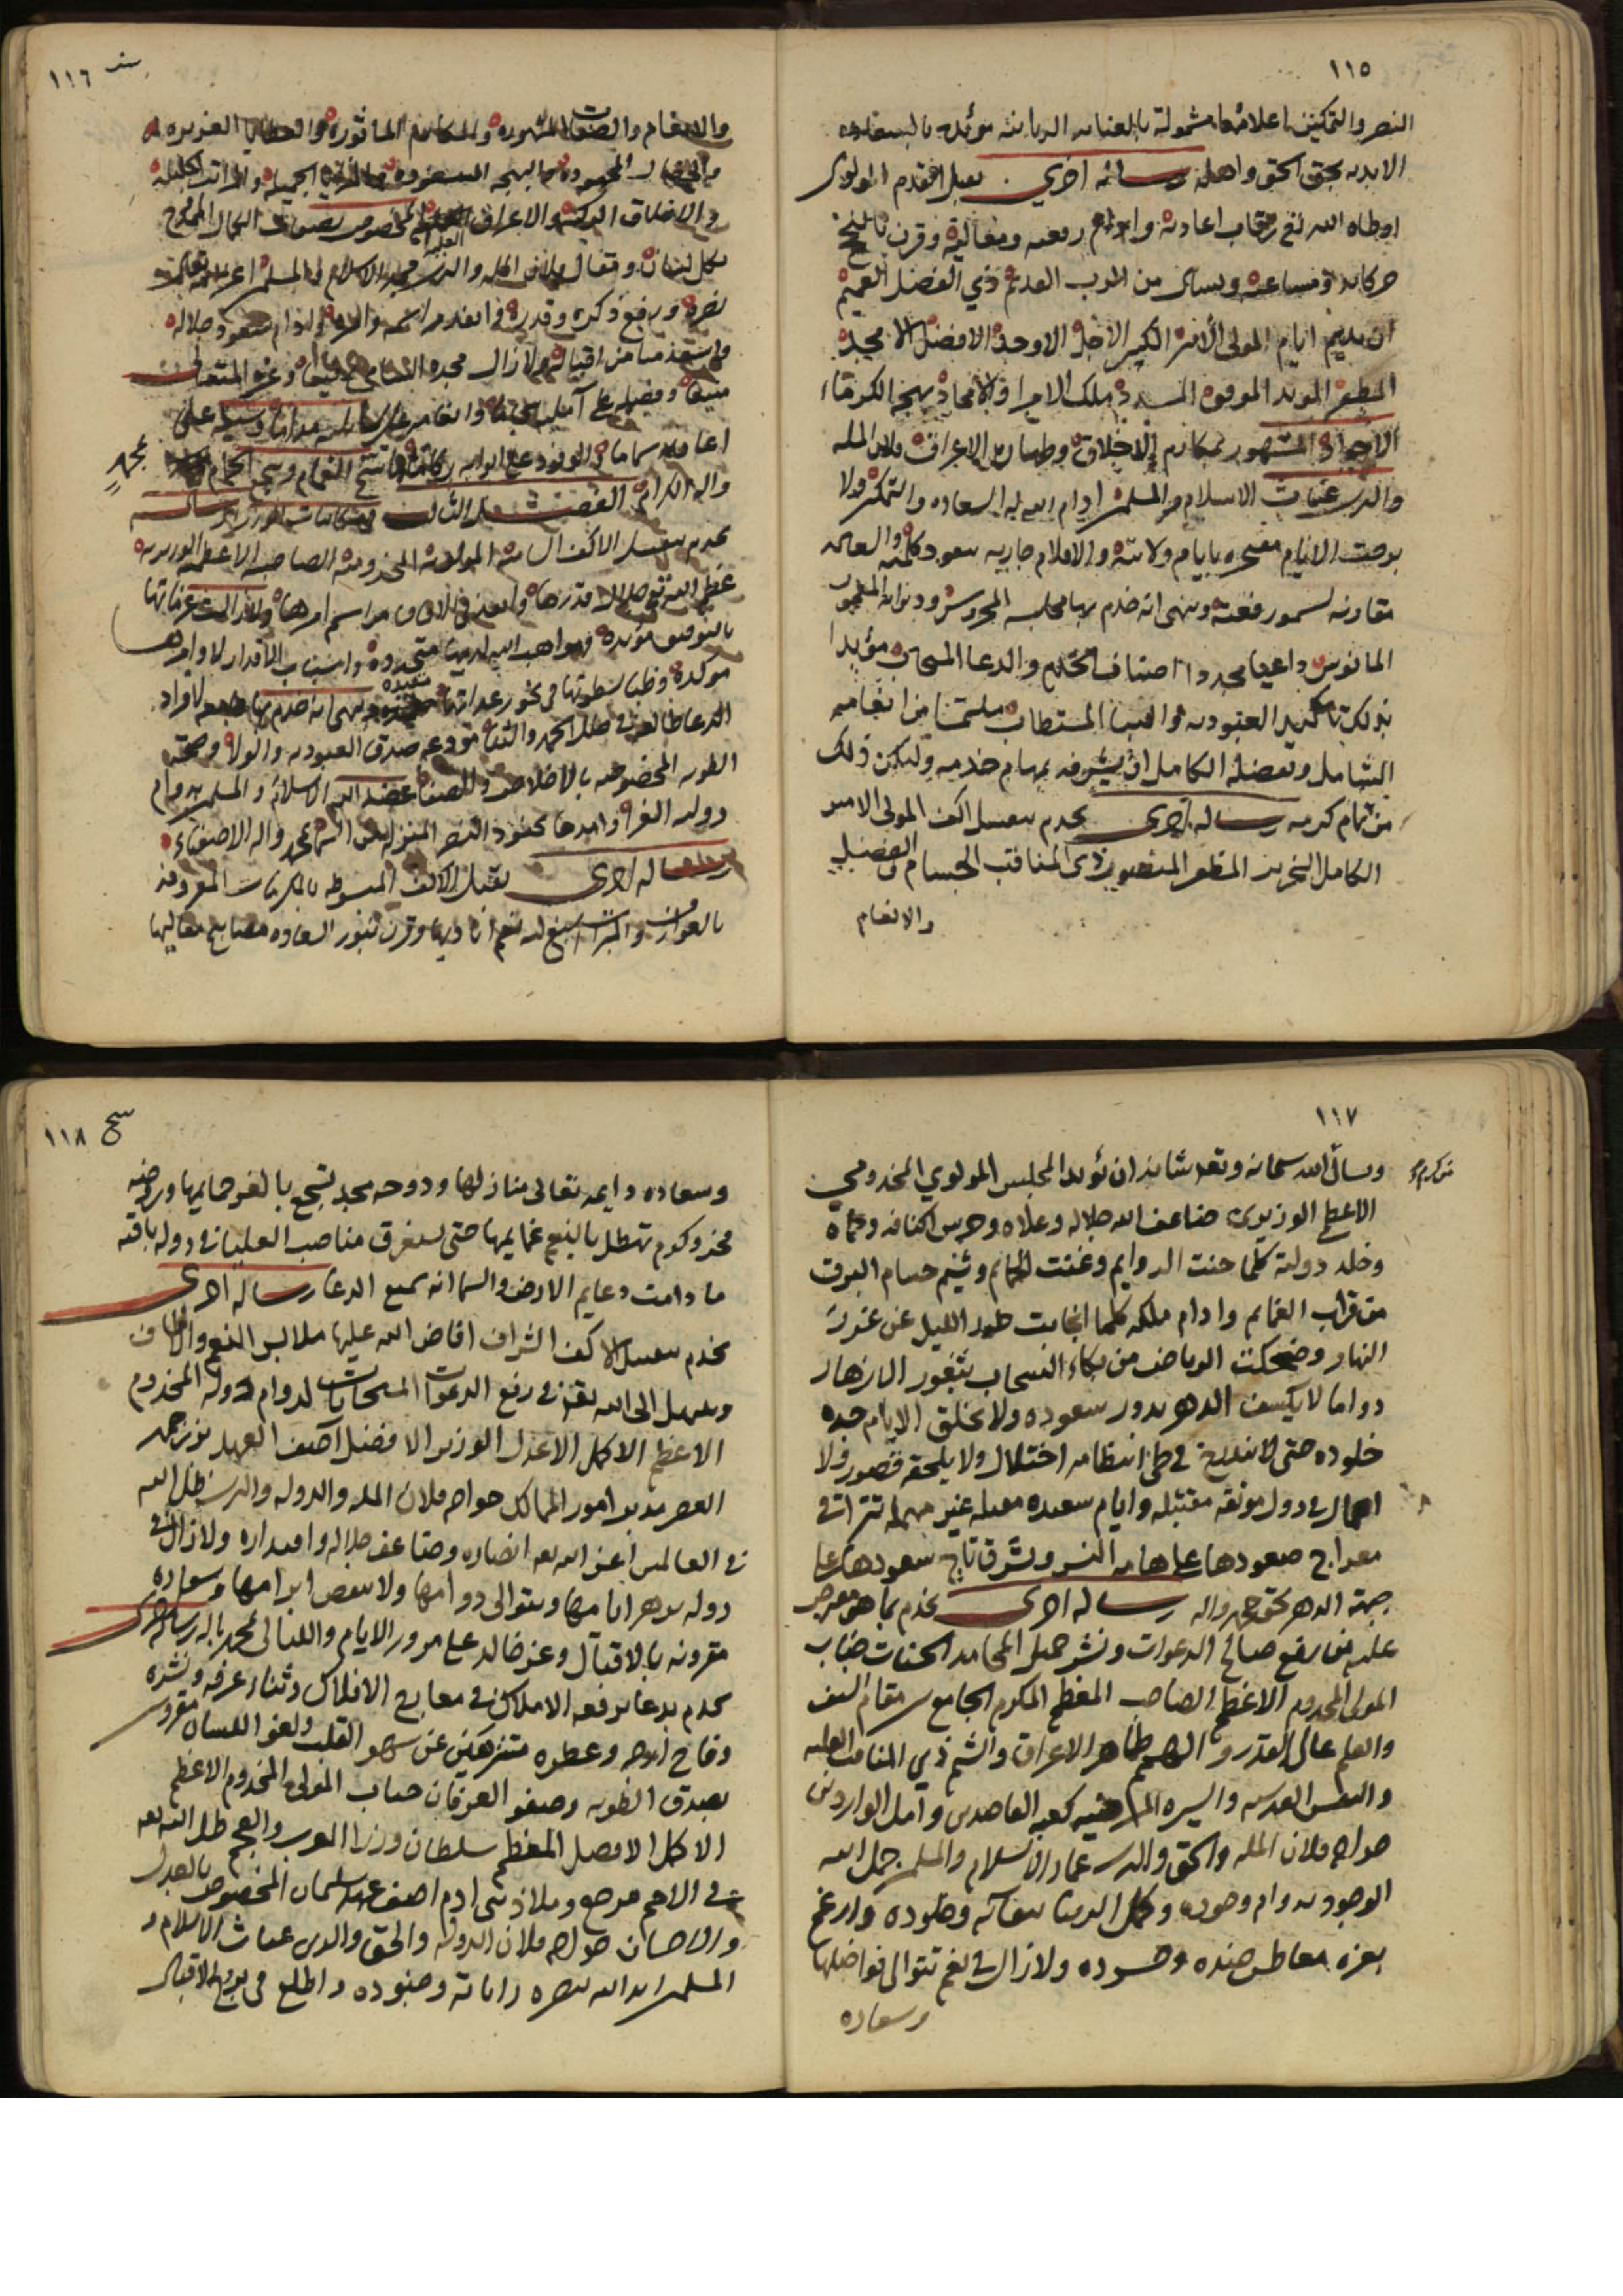 ١١٥
النصر والتمكين اعلامها مشمولة بالعناية الربانية مؤيدة بالسعادة
الابدية بحق الحق واهله رسالة اخرى يقبل المقدم المولوي
اوطاه الله تع رقاب اعاديه وادام رفعته ومعاليه وقرن بالنجح
حركاته ومساعيه ويسال من الرب القديم ذي الفضل العميم
ان يديم ايام المولى الأمير الكبير الاجل الاوحد الافضل الامجد
المظفر المويد الموفق المسدد ملك الامرا والامجاد بهجة الكرماء
الاجواد المشهور بمكارم الاخلاق وطهارة الاعراق فلان الملة
والدين غياث الاسلام والمسلمين ادام الله له السعادة والتمكين ولا
برحت الايام مفتخرة بايام ولايته والاقلام جارية بسعود كلمته والسعاده
مقارنة لسمو رفعته وينهي انه خدم بها مجلسه المحروس وديوانه المعمور
المانوس داعيا مجددا اصناف الخدم والدعا المستجاب مؤيدا
بذلك تاكيد العبودية والثنا المستطاب ملتمسا من انعامه
الشامل وفضله الكامل ان يشرفه بمهام خدمه وليكن ذلك
من تمام كرمه رسالة اخرى يخدم بتقبيل اكف المولى الامير
الكامل النحرير المظفر المنصور ذي المناقب الجسام والفضيل
والانعام
١١٦
والانعام والصفات المشهوره والمكارم الماثورة والعطايا الغزيره
والخصال المحمودة والبهجة المسعودة والمآثر الجميلة والمراتب الجليلة
والاخلاق الزكية والاعراق العلية المخصوص بصنوف الكمال الممدوح
بكل لسان ومقال فلان الملة والدين مجد الاسلام والمسلمين اعز الله تعالى
نصره ورفع ذكره وقدره وانفذ مراسمه وامره وادام سعود جلاله
منيعا وفضله على آمليه
اعاديه
واله الكرام الفصل الثالث في مكاتبات الوزراء رسالة
بمحمد
يخدم بتقبيل الاكف السامية المولوية المخدومية الصاحبية الاعظمية الوزيرية
عظم الله تع جلال قدرها وانفذ في الافاق مراسم امرها ولا زالت عزماتها
بالتوفيق مؤيدة ومواهب الله لديها متجددة واسباب الاقدار لاوامرها
موكدة وظبا سطوتها في نحور عداتها مغمده وينهي انه خدم بها
الدعا ظاهرة في حلل الحمد والثنا مودعة صدق العبودية والولا وصحة
الطوية المخصوصة بالاخلاص والصفا عضد الله الاسلام والمسلمين بدوام
دولته الغرا وامدها بجنود النصر المنزلة من السما بمحمد واله الاصفياء
رسالة اخرى يقبل الاكف المبسوطة بالمكرمات المعروفة
بالعوارف والمبرات اسبغ الله نعم اياديها وقرن بنور السعاده مصابيح معاليها
١١٧
ويسأل الله سبحانه وتعد شانه ان يؤيد المجلس المولوي المخدومي
الاعظم الوزيري ضاعف الله جلاله وعلاه وحرس اكنافه وحماه
وخلد دولته كلما حنت الروايم وغنت الحمايم وشيم حسام البرق
من قراب الغمايم وادام ملكه كلما انجابت طرر الليل عن غرر
النهار وضحكت الرياض من بكاء السحاب بثغور الازهار
دواما لا يكسف الدهر بدور سعوده ولا تخلق الايام جده
خلوده حتى لا يندرج في طي انتظامه اختلال ولا يلحقه قصور ولا
اهمال في دول مونقة مقتبلة وايام سعيده مقبلة غير مهملة تتراقى
معراج صعودها على هامة النسر وشرفات تاج سعودها على
جبهة الدهر بحق محمد واله رسالة اخرى يخدم بما هو معروض
عليه من رفع صالح الدعوات ونشر جميل المحامد الحسنات جناب
المولى المخدوم الاعظم الصاحب المعظم المكرم الجامع بين مقام السيف
والقلم عالي القدر والهمم طاهر الاعراق والشيم ذي المناقب العلية
والنفس القدسية والسيرة المرضيه كعبة القاصدين وامل الواردين
خواجه فلان الملة والحق والدين عماد الاسلام والمسلمين جمل الله
الوجود بدوام وجوده وكمل الدنيا ببقائه وخلوده وارغم
بعزه معاطس ضده وحسوده ولا زال في نعم تتوالى فواضلها
وسعاده
١١٨
وسعاده دايمة تتعالى منازلها ودوحة مجد تسجع بالعز حمايمها وروضة
فخر وكرم تهطل بالنعم غمايمها حتى يستغرق مناصب العليا في دولة باقية
ما دامت دعايم الارض والسما انه سميع الدعا رسالة اخرى
يخدم بتقبيل الاكف الشراف افاض الله عليها ملابس النعم والالطاف
ويبتهل الى الله تعز في رفع الدعوات المستجابات لدوام دولة المخدوم
الاعظم الاكمل الاعدل الوزير الافضل آصف العهد بوزرجمهر
العصر مدبر امور الممالك خواجه فلان الملة والدولة والدين ظل الله
في العالمين اعز الله تعه انصاره وضاعف جلاله واقتداره ولا زال في
دولة يزهر ايامها ويتوالى دوامها ولا ينقض ابرامها وسعادة
مقرونة بالاقبال وعز خالد على مرور الايام والليالي بمحمد واله رسالة اخرى
يخدم بدعا يرفعه الاملاك في معارج الافلاك وثناء عرفه ونشره
وفاح ارجه وعطره متنزهين عن سهو القلب ولغو اللسان مقرون
بصدق الطوية وصفو العرفان جناب المولى المخدوم الاعظم
الاكمل الافضل المعظم سلطان وزرا العرب والعجم ظل الله تعه
في الامم مرجع وملاذ بني ادم اصف عهد سلمان المخصوص بالعدل
والاحسان خواجه فلان الدولة والحق والدين غياث الاسلام و
المسلمين ايد الله بنصره راياته وجنوده واطلع في بروج الاقبال